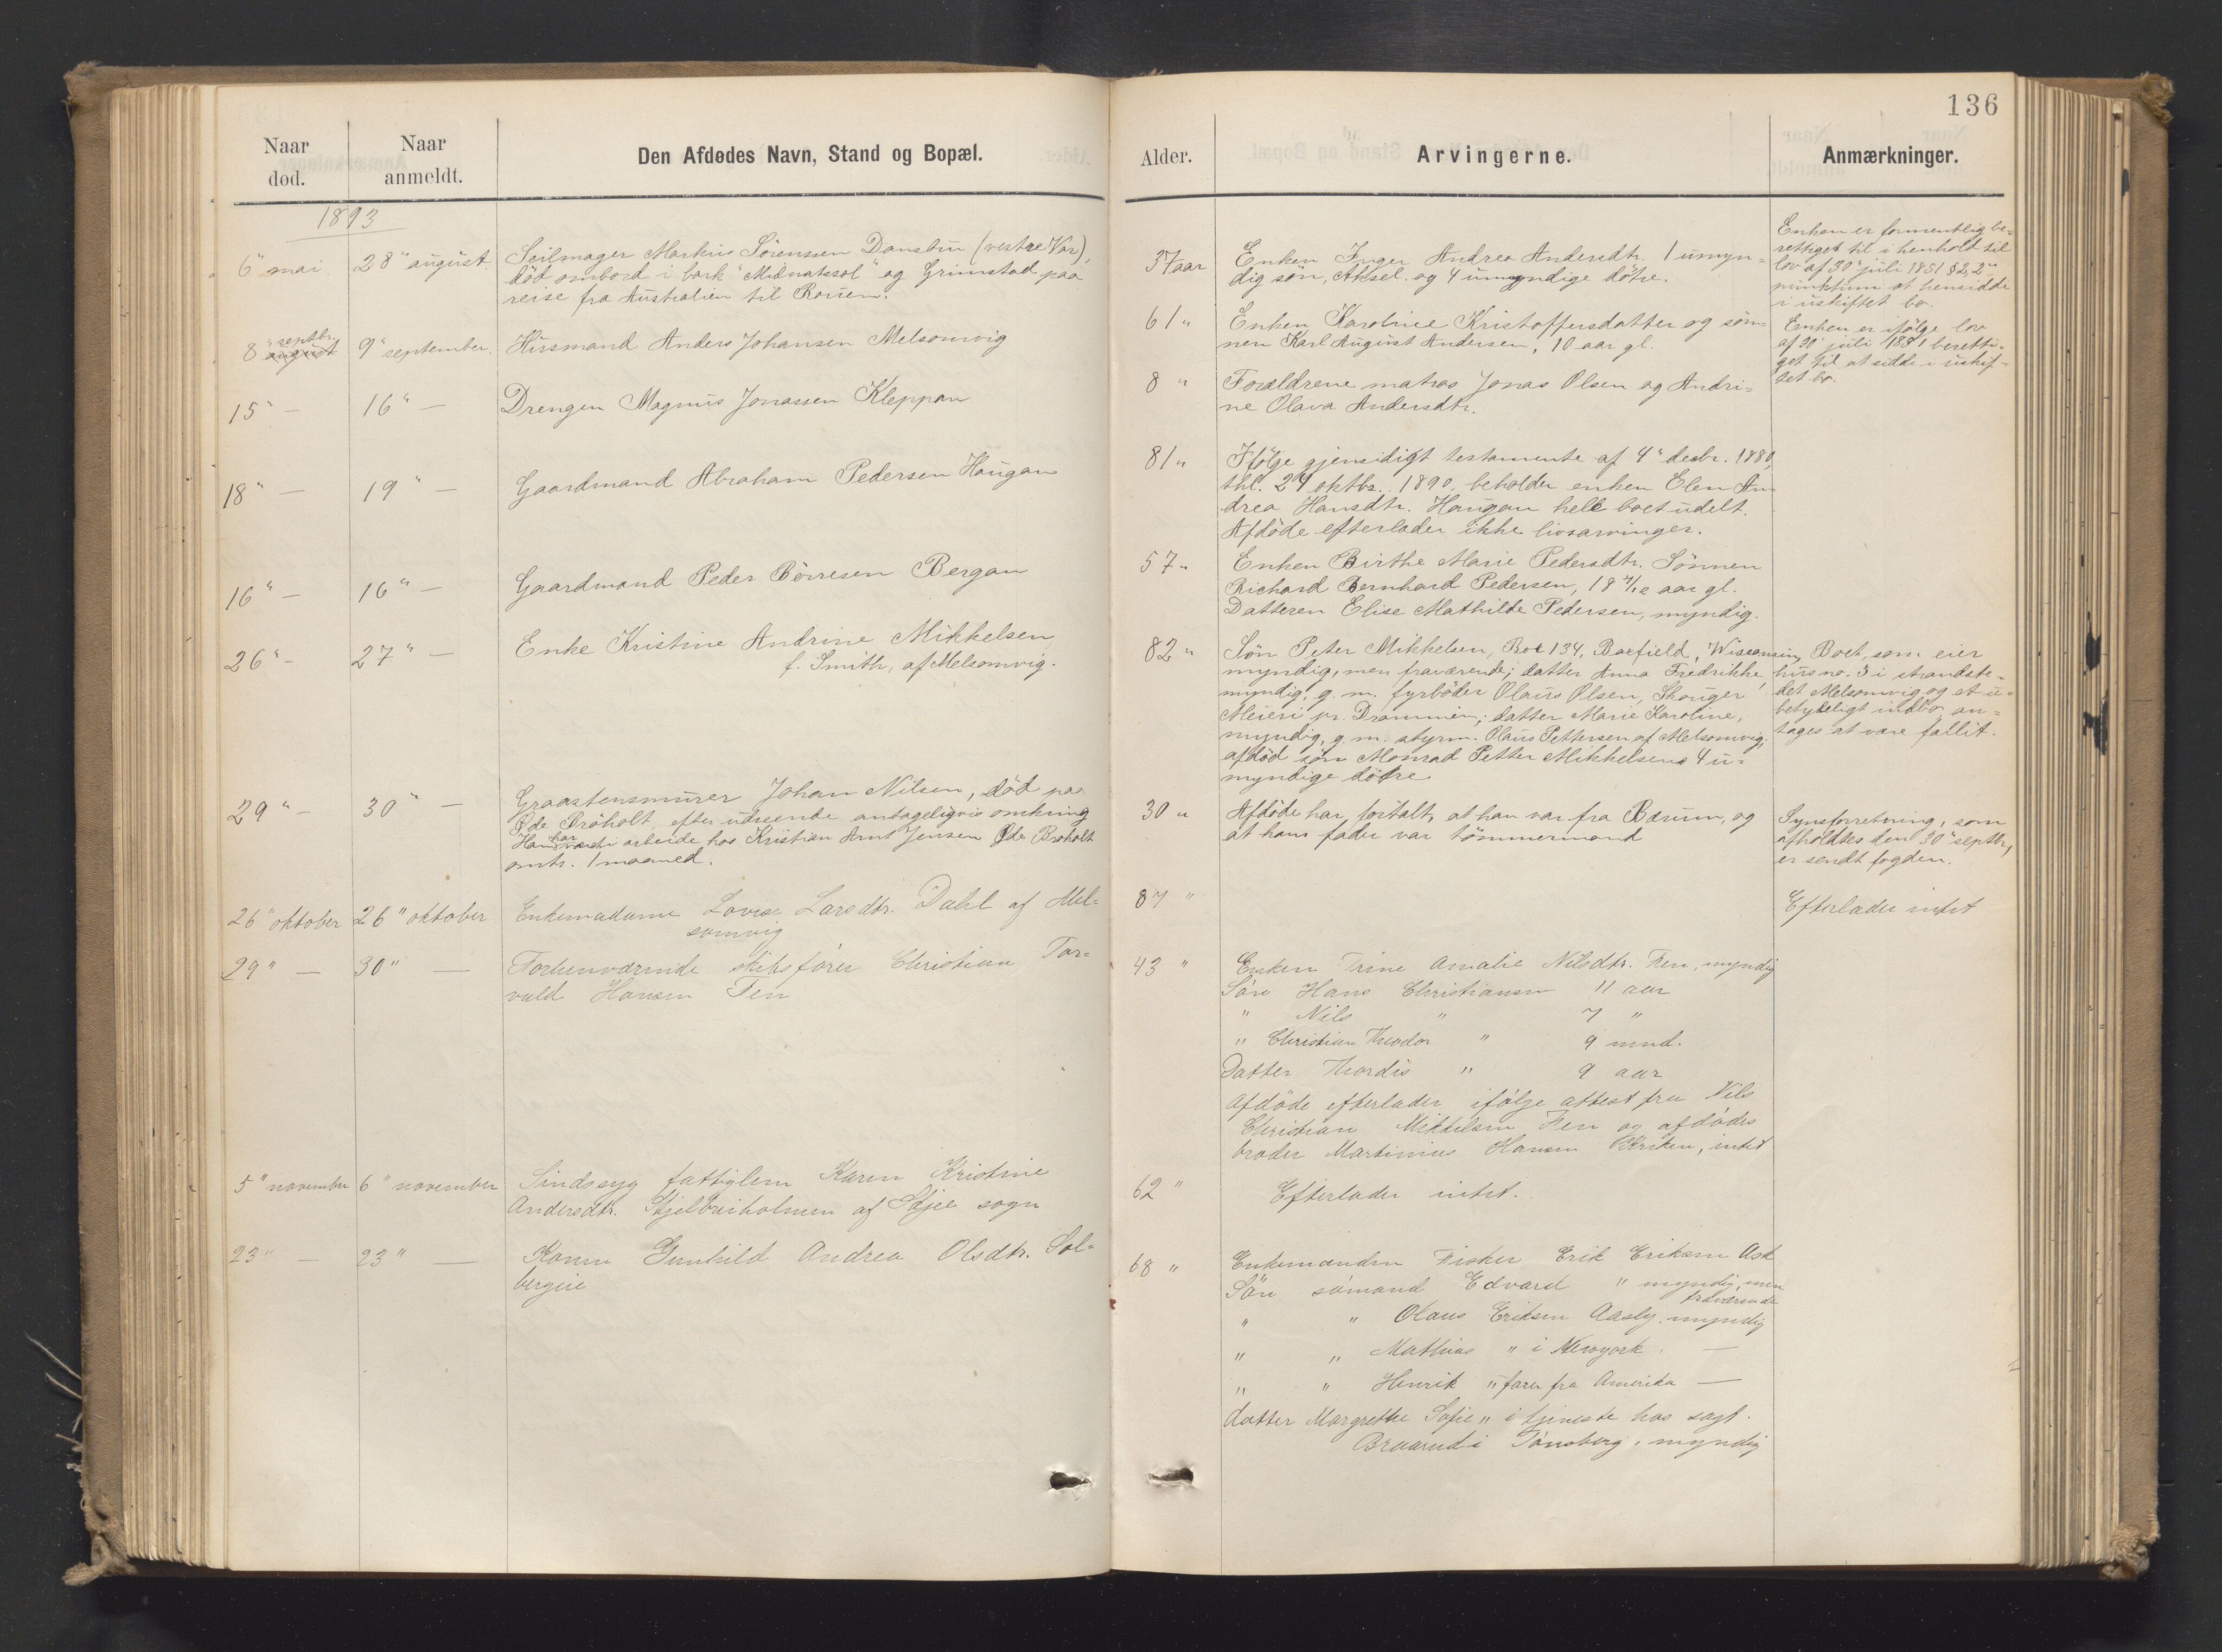 136
Naar død.
Naar anmeldt.
Den Afdødes Navn, Stand og Bopæl.
Alder.
Arvingerne.
Anmærkninger.
1893
6" mai
28" august
Seilmager Markus Sörensen Danebu (vestre Var),
död ombord i bark "Midnatssol" af Grimstad paa
reise fra Australien til Rouen.
37 aar
Enken Inger Andrea Andersdtr. 1 umyn=
dig sön, Aksel. og 4 umyndige dötre.
Enken er formentlig be=
rettiget til i henhold til
lov af 30" juli 1851 § 2, 2"
punktum at hensidde
i uskiftet bo.
8" septbr. august
9" september
Husmand Anders Johansen Melsomvig
61 "
Enken Karoline Kristoffersdatter og søn=
nen Karl August Andersen, 10 aar gl.
Enken er ifölge lov
af 30" juli 1851 beretti=
get til at sidde i uskif=
tet bo.
15" —
16" —
Drengen Magnus Jonassen Kleppan
8 "
Forældrene matros Jonas Olsen og Andri=
ne Olava Andersdtr.
18" —
19" —
Gaardmand Abraham Pedersen Haugan
81 "
Ifölge gjensidigt testamente af 4" decbr. 1880,
thl. 24 oktbr. 1890, beholder enken Elen An=
drea Hansdtr. Haugan hele boet udelt.
Afdöde efterlader ikke livsarvinger.
16" —
16" —
Gaardmand Peder Börresen Bergan
57 "
Enken Birthe Marie Pedersdtr. Sönnen
Richard Bernhard Pedersen, 18 aar gl.
Datteren Elise Mathilde Pedersen, myndig.
26" —
27" —
Enke Kristine Andrine Mikkelsen
f. Smith, af Melsomvig.
82 "
Søn Peter Mikkelsen, 134, Barfield, Wisconsin,
myndig, men fraværende; datter Anna Fredrikke,
myndig, g. m. fyrböder Olaus Olsen, Skouger
Meieri pr. Drammen; datter Marie Karoline,
myndig, g. m. styrm. Olaus Pettersen af Melsomvig,
afdöd sön Monrad Petter Mikkelsens 4 u=
myndige dötre
Boet, som eier
hus no. 3 i strandste=
det Melsomvig og et u=
betydeligt indbo, an=
tages at være fallit.
29" —
30" —
Graastensmurer Johan Nilsen, død paa
Øde Bröholt, efter udseende antageligvis omkring
Han har arbeide hos Kristian Arnt Jensen Øde Broholt
omtr. 1 maaned.
30 "
Afdöde har fortalt, at han var fra Bærum, og
at hans fader var tömmermand
Synsforretning, som
afholdtes den 30" septbr.,
er sendt fogden.
26" oktober
26" oktober
Enkemadame Lovise Larsdtr. Dahl af Mel=
somvig
87 "
Efterlader intet
29" —
30" —
Forhenværende skibsförer Christian Tor=
vald Hansen Fen
43 "
Enken Trine Amalie Nilsdtr. Fen, myndig
Sön Hans Christiansen 11 aar
" Nils " 7 "
" Christian Theodor " 9 mnd.
Datter Thordis " 9 aar
Afdöde efterlader ifölge attest fra Nils
Christian Mikkelsen Fen og afdödes
broder Martinius Hansen Virken, intet
5" november
6" november
Sindssyg fattiglem Karen Kristine
Andersdtr. Skjelbreiholmen af Skjee sogn
62 "
Efterlader intet.
23" —
23" —
Konen Gunhild Andrea Olsdtr. Sol=
bergeie
68 "
Enkemanden Fisker Erik Eriksen Ask
Sön sömand Edvard " myndig, men
fraværende
" " Olaus Eriksen Aasly, myndig
" " Mathias " i Newyork —
" " Henrik " farer fra Amerika —
datter Margrethe Sofie " i tjeneste hos sagf.
Bruarud i Tönsberg, myndig